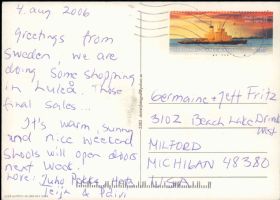 4. aug 2006
Greetings from
Sweden, we are
doing some shopping
in Luleå. Those
final sales...
It's warm, sunny
and nice weekend
Shools will open doors
next week!
Love:
Leija & Päivi
Germaine + Jeff Fritz
3102 Beach Lake Drive
West
MILFORD
MICHIGAN 48380
USA